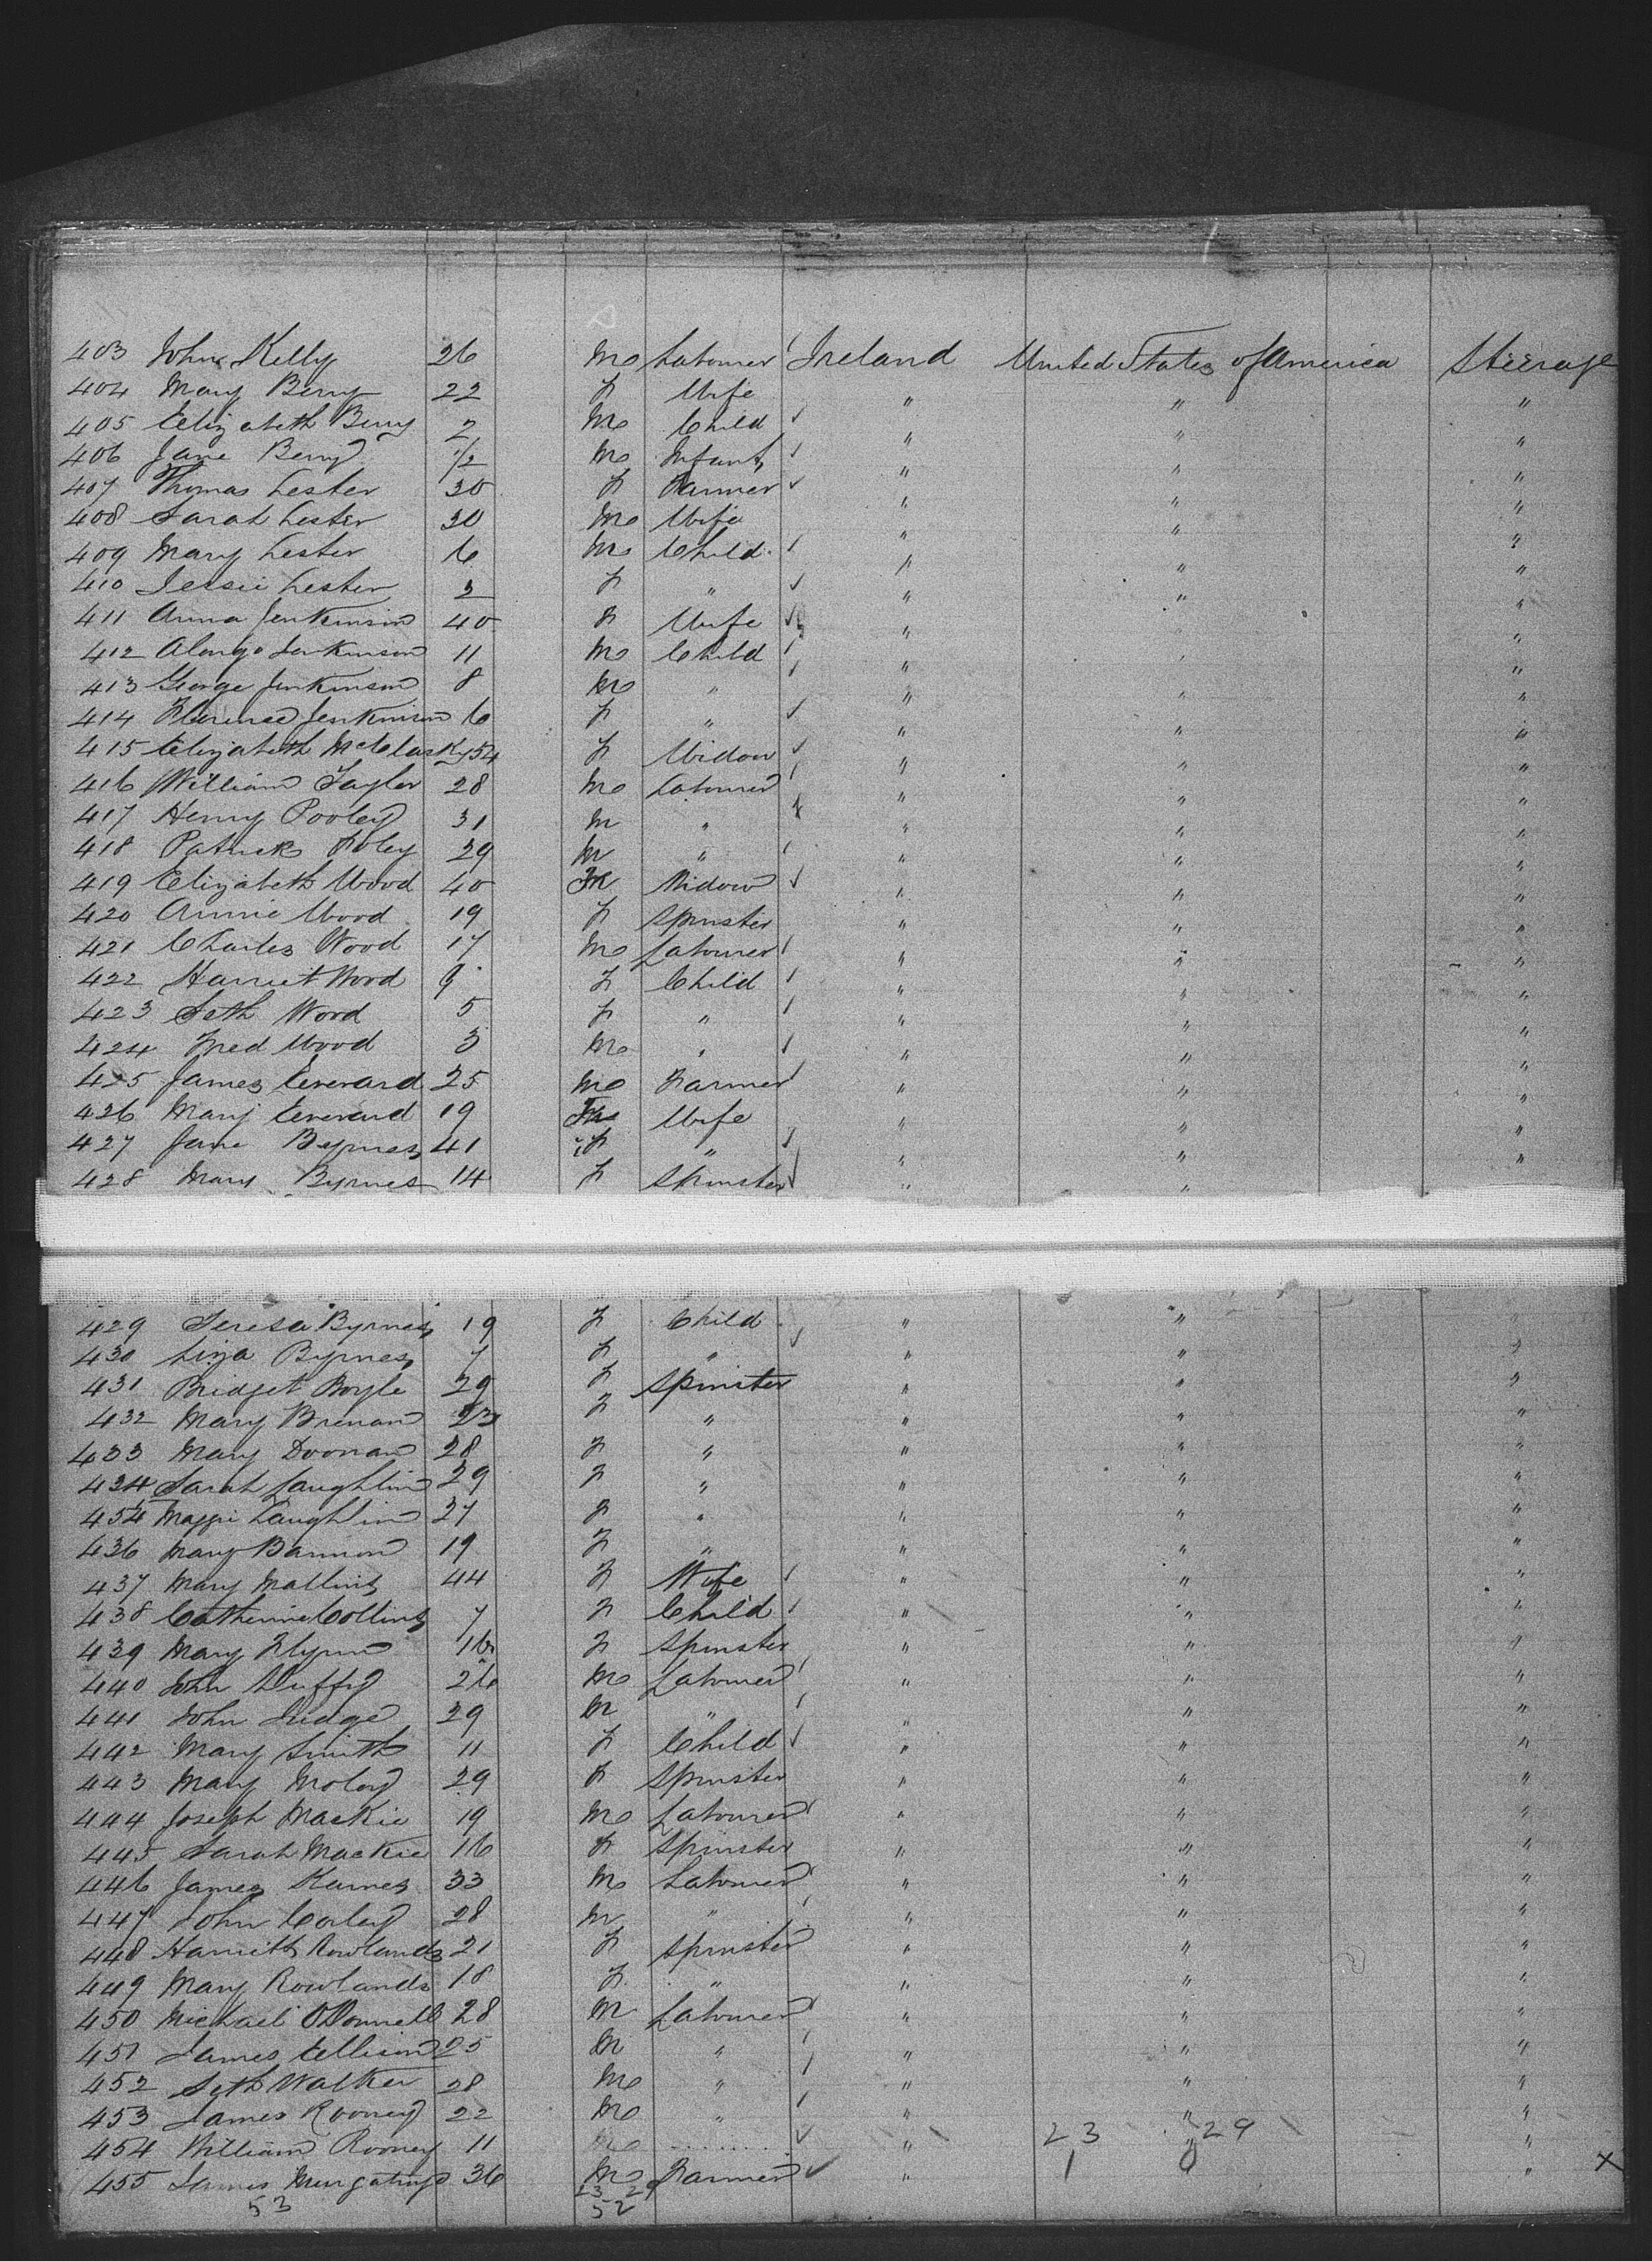 403 John Kelly 26 M Labourer Ireland United States of America Steerage
404 Mary Berry 22 F Wife " " "
405 Elizabeth Berry 2 M Child " " "
406 Jane Berry 1/2 M Infant " " "
407 Thomas Lester 30 F Farmer " " "
408 Sarah Lester 30 M Wife " " "
409 Mary Lester 6 M Child " " "
410 Jessie Lester 3 F " " " "
411 Anna Jenkinson 40 F Wife " "
412 Alonzo Jenkinson 11 M Child " " "
413 George Jenkinson 8 M " " " "
414 Florence Jenkinson 6 F " " " "
415 Elizabeth McClusky 54 F Widow " " "
416 William Taylor 28 M Labourer " " "
417 Henry Pooley 31 M " " " "
418 Patrick Foley 29 M " " " "
419 Elizabeth Wood 40 F Widow " " "
420 Annie Wood 19 F Spinster " " "
421 Charles Wood 17 M Labourer " " "
422 Harriet Wood 9 F Child " " "
423 Seth Wood 5 F " " " "
424 Fred Wood 3 M " " " "
425 James Everard 25 M Farmer " " "
426 Mary Everard 19 F Wife " " "
427 Jane Byrnes 41 F " " " "
428 Mary Byrnes 14 F Spinster " "
429 Teresa Byrnes 19 F Child " " "
430 Liza Byrnes 7 F " " " "
431 Bridget Boyle 29 F Spinster " " "
432 Mary Brenan 23 F " " " "
433 Mary Doonan 28 F " " " "
434 Sarah Laughlin 29 F " " " "
454 Maggie Laughlin 27 F " " " "
436 Mary Bannon 19 F " " " "
437 Mary Mallins 44 F Wife " " "
438 Catherine Collins 7 F Child " " "
439 Mary Flynn 16 F Spinster " " "
440 John Duffy 26 M Labourer " " "
441 John Judge 29 M " " " "
442 Mary Smith 11 F Child " " "
443 Mary 29 F Spinster " " "
444 Joseph Mackie 19 M Labourer " " "
445 Sarah Mackie 16 F Spinster " " "
446 James Karnes 33 M Labourer " " "
447 John Corley 28 M " " " "
448 Harriett Rowlands 21 F Spinster " " "
449 Mary Rowlands 18 F " " " "
450 Michael O'Donnell 28 M Labourer " " "
451 James Ellison 25 M " " " "
452 Seth Walker 28 M " " " "
453 James Rooney 22 M " " " "
23 29
454 William Rooney 11 M " " "
1 0
455 James 36 M Farmer " " X
23 29
53 52